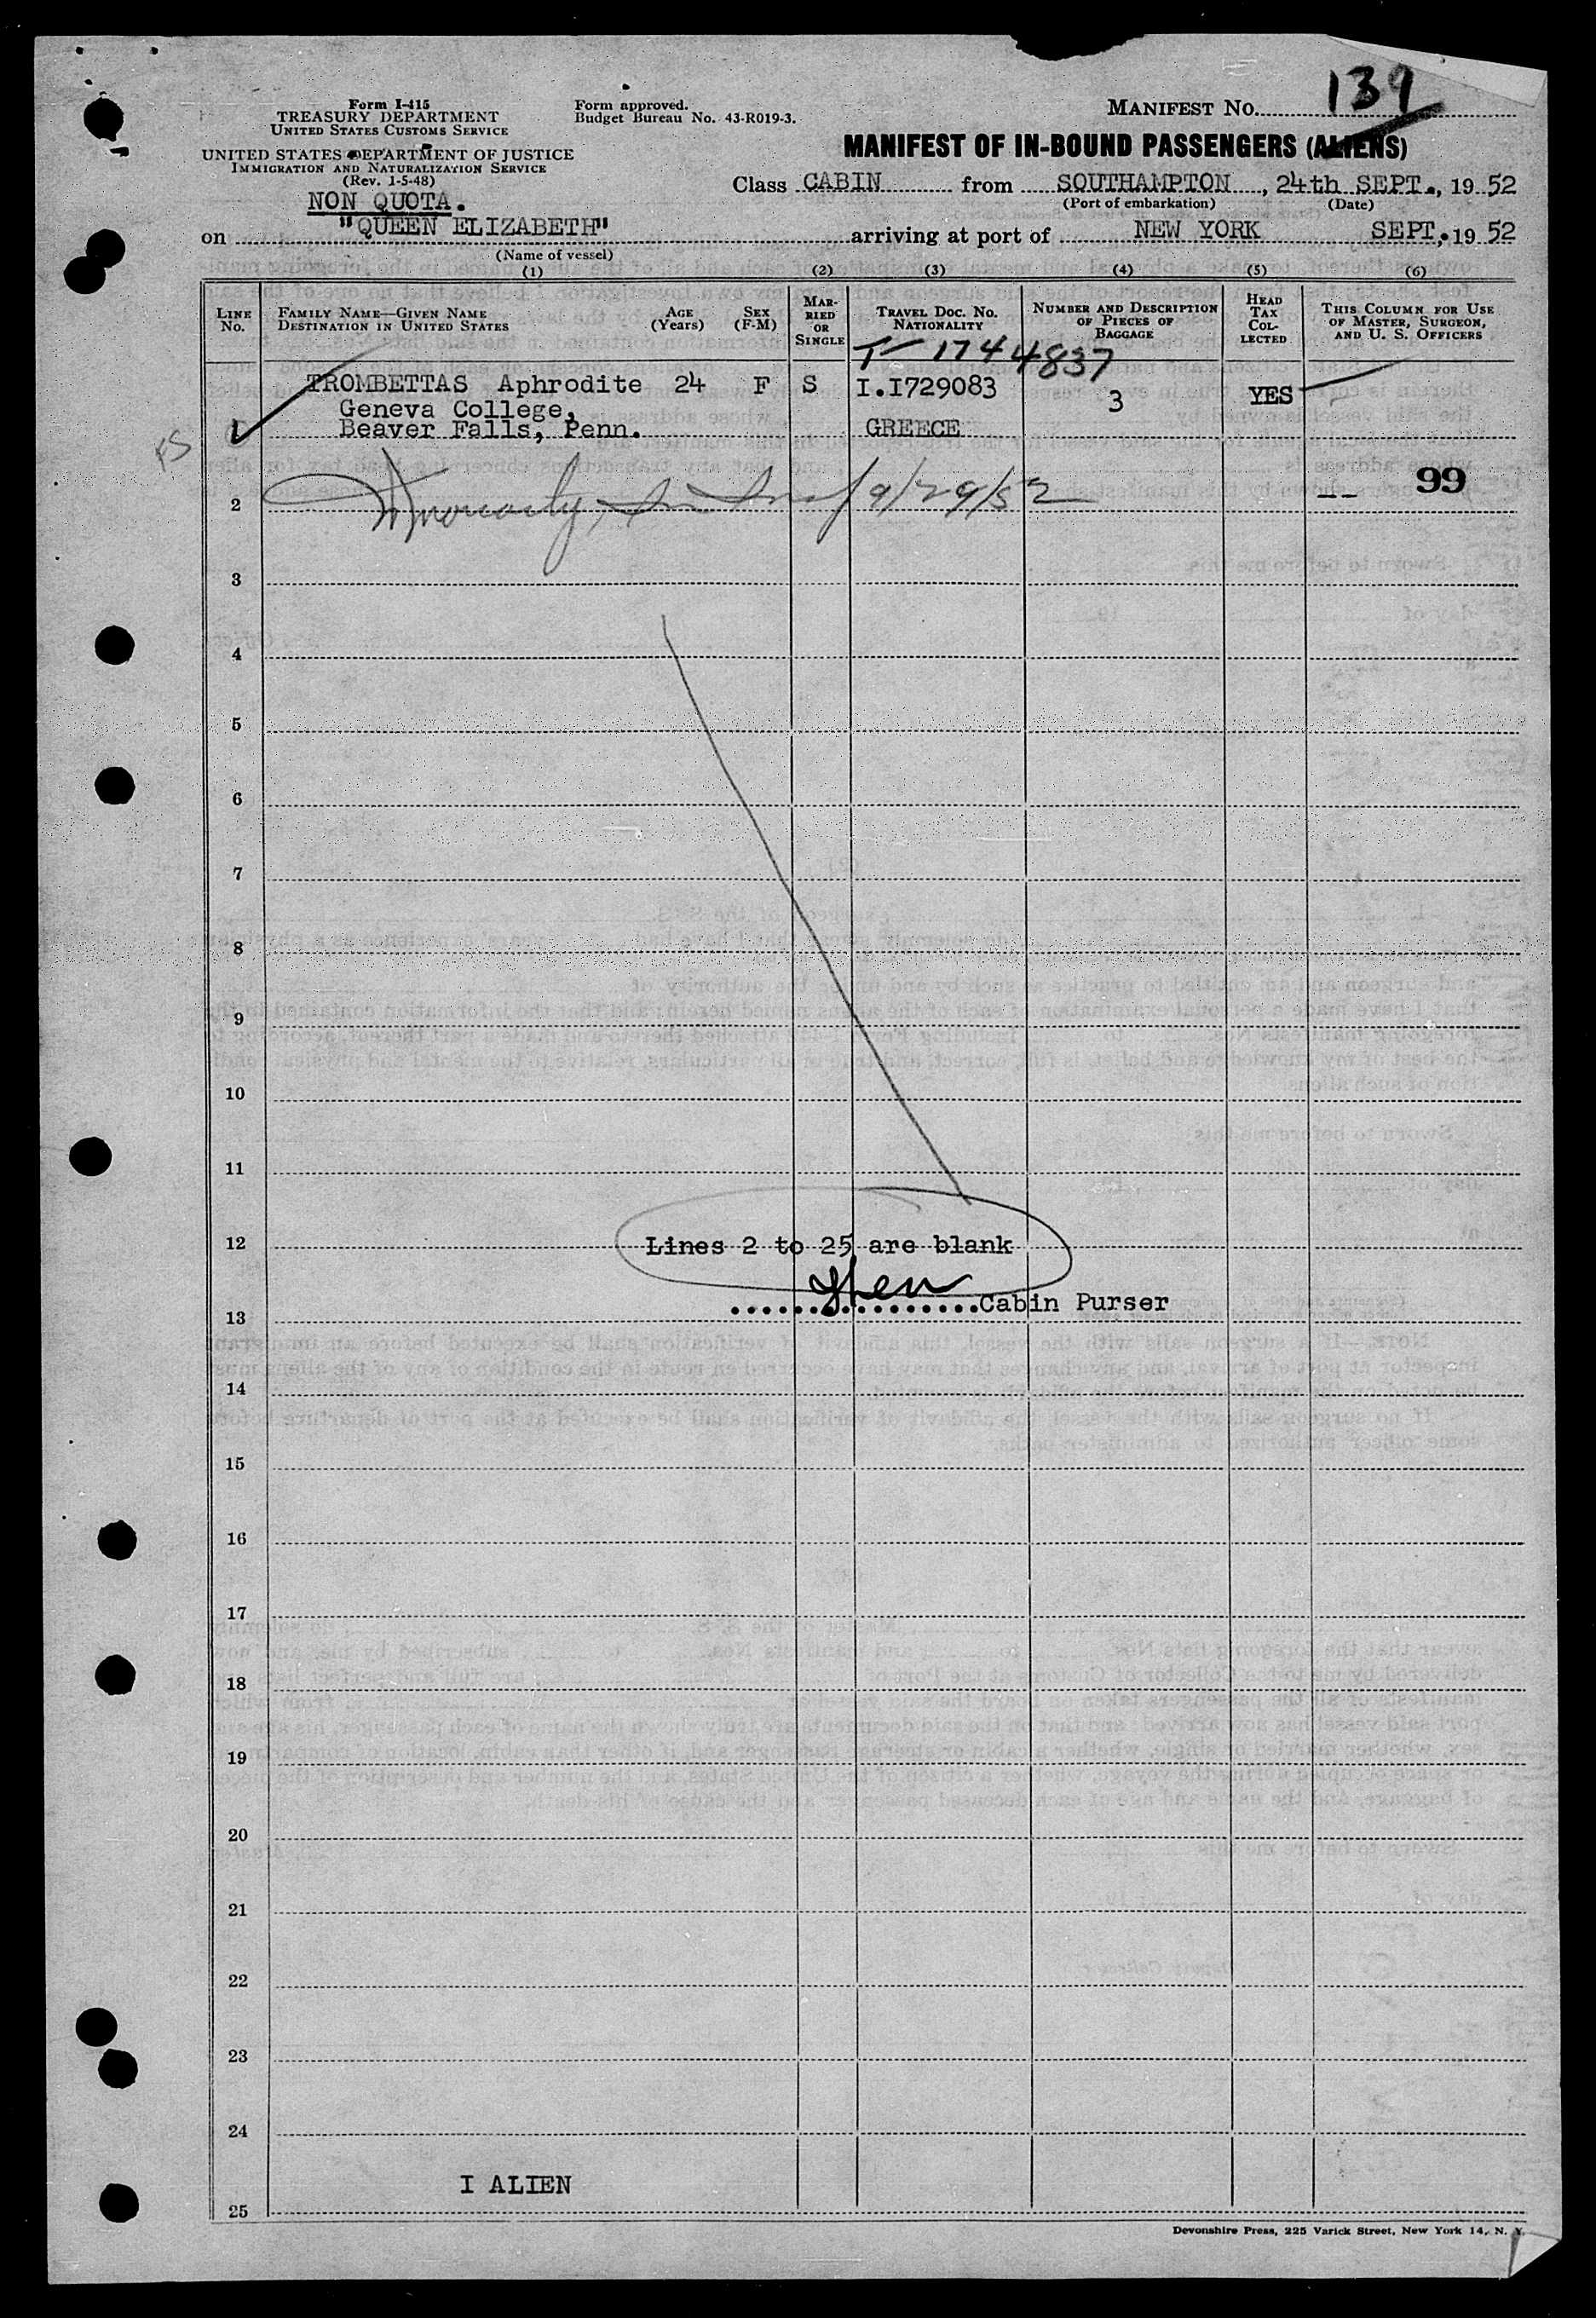 Form I-415
TREASURY DEPARTMENT
UNITED STATES CUSTOMS SERVICE
UNITED STATES DEPARTMENT OF JUSTICE
IMMIGRATION AND NATURALIZATION SERVICE
(Rev. 1-5-48)
Form approved.
Budget Bureau No. 43-R019-3.
MANIFEST NO. 139
MANIFEST OF IN-BOUND PASSENGERS (ALIENS)
Class CABIN from SOUTHAMPTON, 24th SEPT., 19 52
(Port of embarkation) (Date)
NON QUOTA.
on "QUEEN ELIZABETH" arriving at port of NEW YORK SEPT, 19 52
(Name of vessel)
(1) (2) (3) (4) (5) (6)
LINE NO.
FAMILY NAME—GIVEN NAME
DESTINATION IN UNITED STATES
AGE (Years)
SEX (F-M)
MARRIED OR SINGLE
TRAVEL DOC. NO. NATIONALITY
NUMBER AND DESCRIPTION OF PIECES OF BAGGAGE
HEAD TAX COLLECTED
THIS COLUMN FOR USE OF MASTER, SURGEON, AND U. S. OFFICERS
T-1744837
TROMBETTAS Aphrodite 24 F S I.I729083 3 YES
Geneva College,
FS 1 Beaver Falls, Penn. GREECE
2 9/29/52 -- 99
3
4
5
6
7
8
9
10
11
12 Lines 2 to 25 are blank
13 Cabin Purser
14
15
16
17
18
19
20
21
22
23
24
I ALIEN
25
Devonshire Press, 225 Varick Street, New York 14, N. Y.